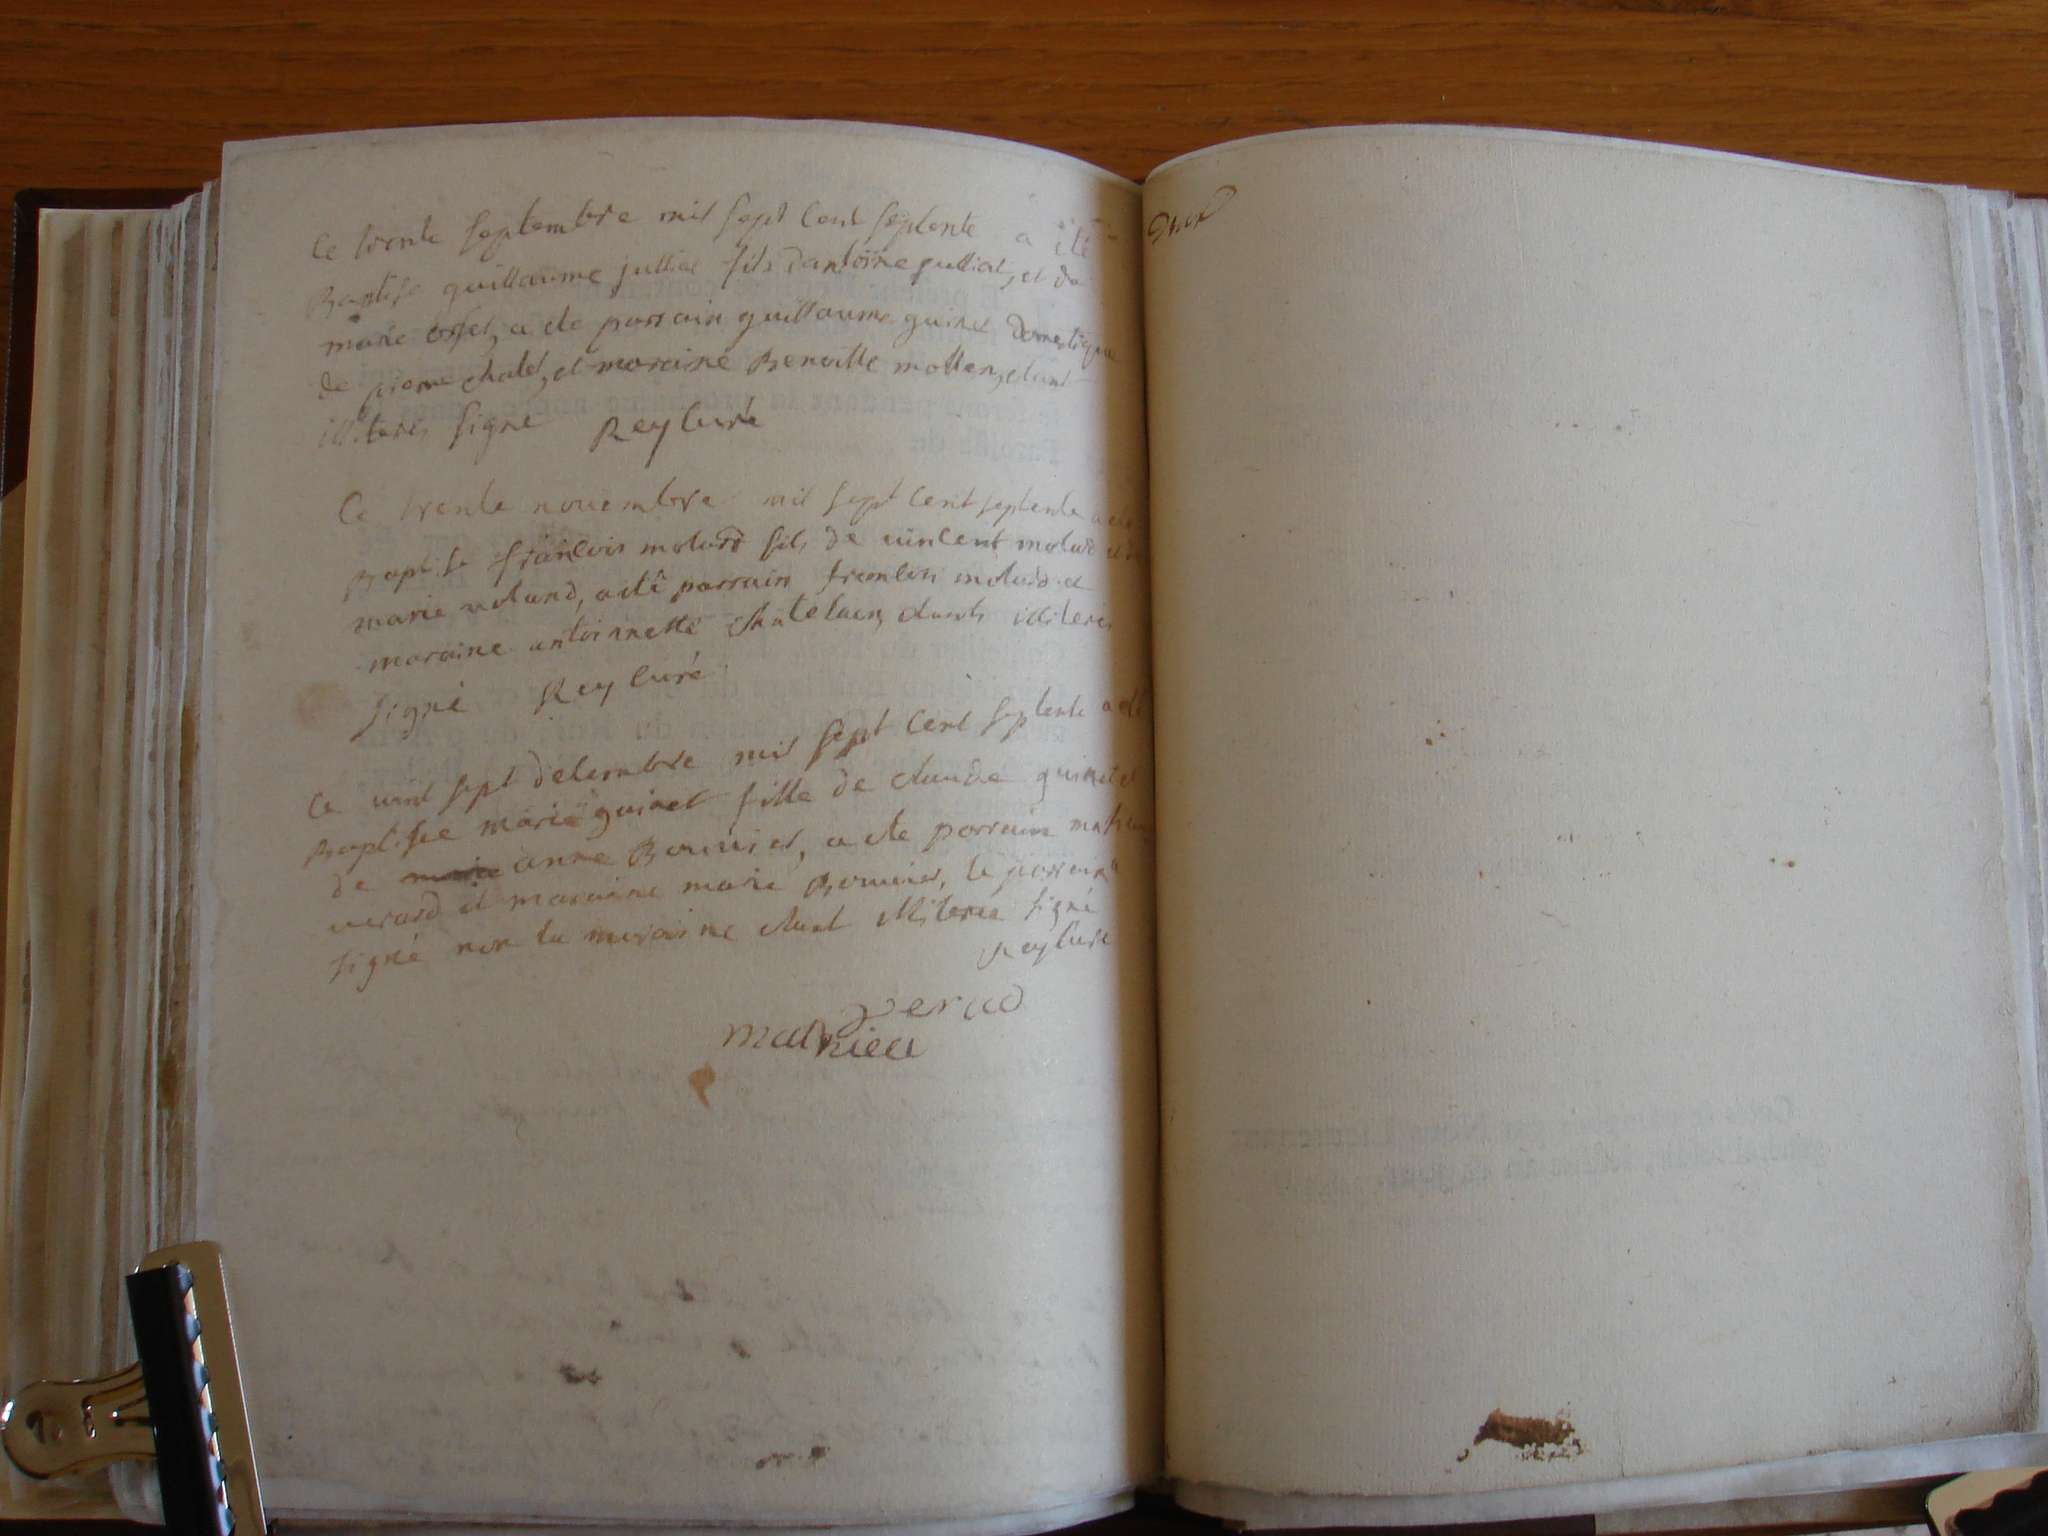 Ce trente septembre mil sept cent septente a été
Baptise guillaume jullia fils dantoine julliat, et de
marie, a ete parrain guillaume guinet Domestique
de pierre chalet, et maraine Benoitte mollen, etant
illiteres signe Rey curé
Ce trente novembre mil sept cent septente a ete
Baptise francois molard fils de vincent molard et de
marie, a eté parrain francois molard et
maraine antoinette chatelain, etants illiteres
signé Rey curé
Ce vint sept decembre mil sept cent septente a eté
Baptisee marie guinet fille de claude guinet et
de anne Bouvier, a ete parrain mathieu
verard et maraine marie Bouvier, le parrain a
signé non la maraine etant illiteree signé
Rey curé
verad
mathieu